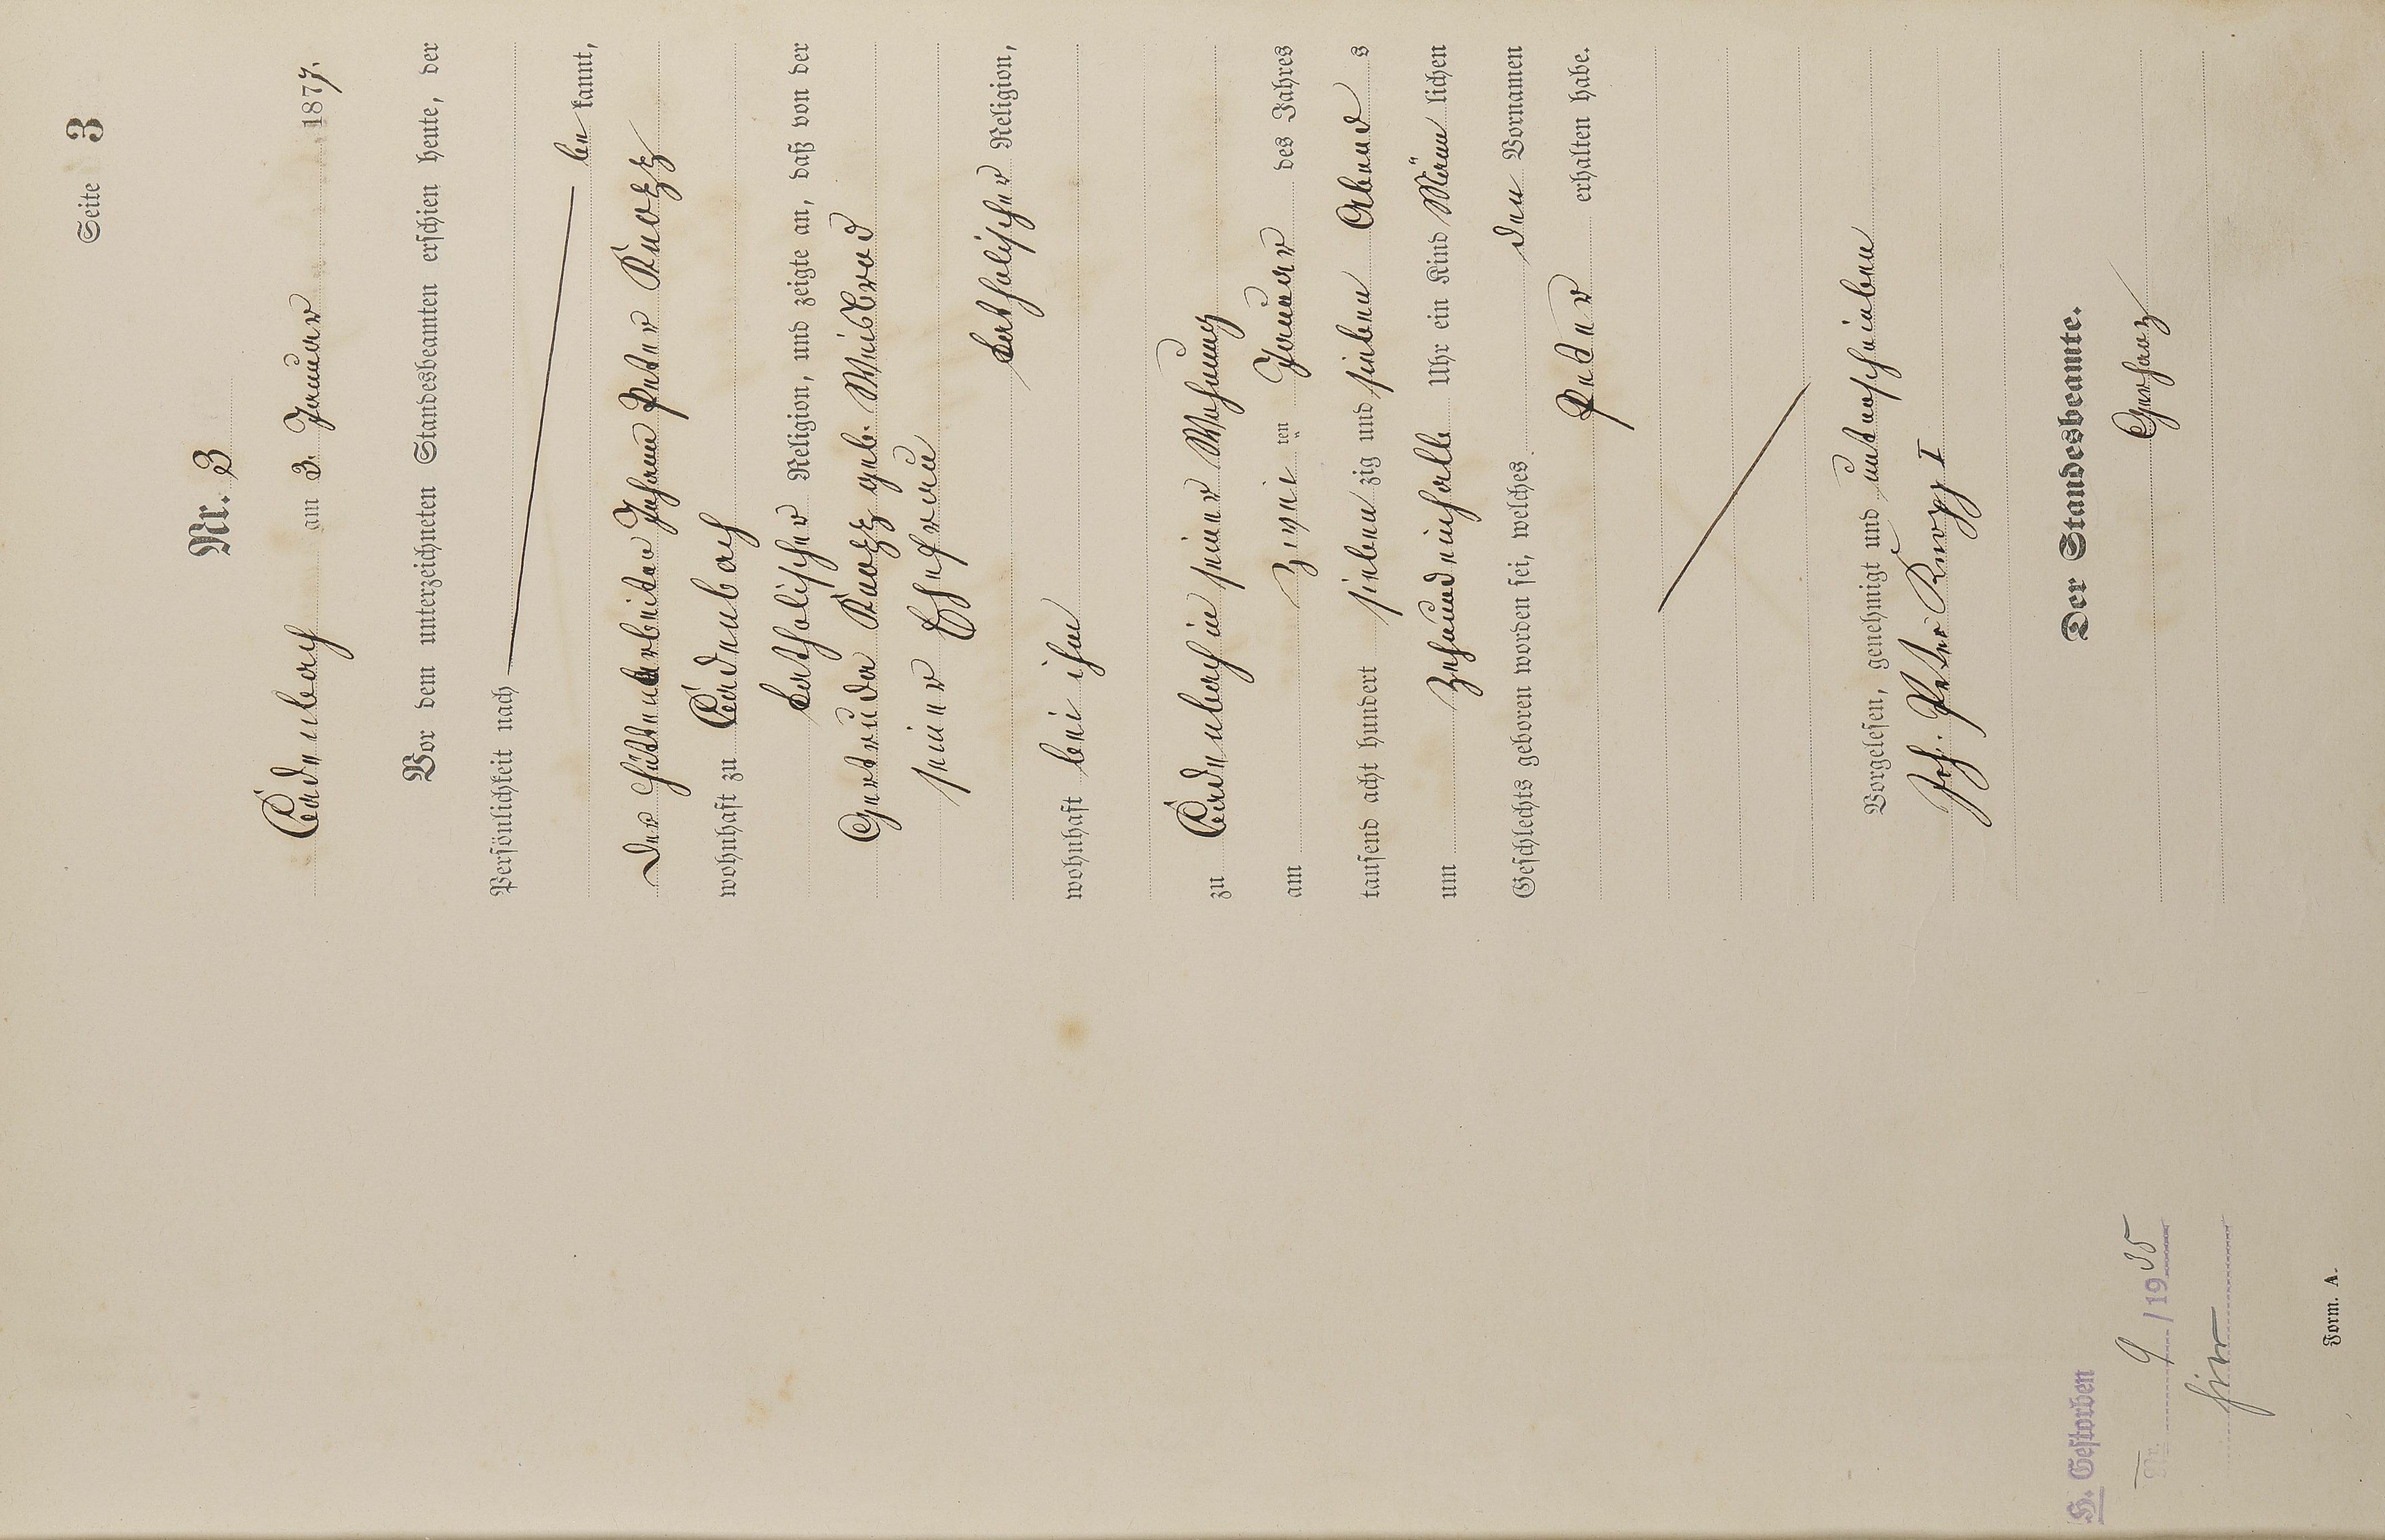 Seite 3
Nr. 3
Cadenbach am 3. Januar 1877.
Vor dem unterzeichneten Standesbeamten erschien heute, der
Persönlichkeit nach
be kannt,
der Hüttenarbeiter Johann Peter Knopp
wohnhaft zu Cadenbach
katholischer Religion, und zeigte an, daß von der
Gertruda Knopp geb. Weisbrod
seiner Ehefrau
katholischer Religion,
wohnhaft bei ihm
zu Cadenbach in seiner Wohnung
am zwei ten Januar des Jahres
tausend acht hundert sieben zig und sieben Abend s
um zehnundeinhalb Uhr ein Kind männ lichen
Geschlechts geboren worden sei, welches den Vornamen
Peter erhalten habe.
Vorgelesen, genehmigt und unterschrieben
Joh. Peter Knopp I
Der Standesbeamte.
H. Gestorben
Nr. 9 /1935
hier
Form. A.